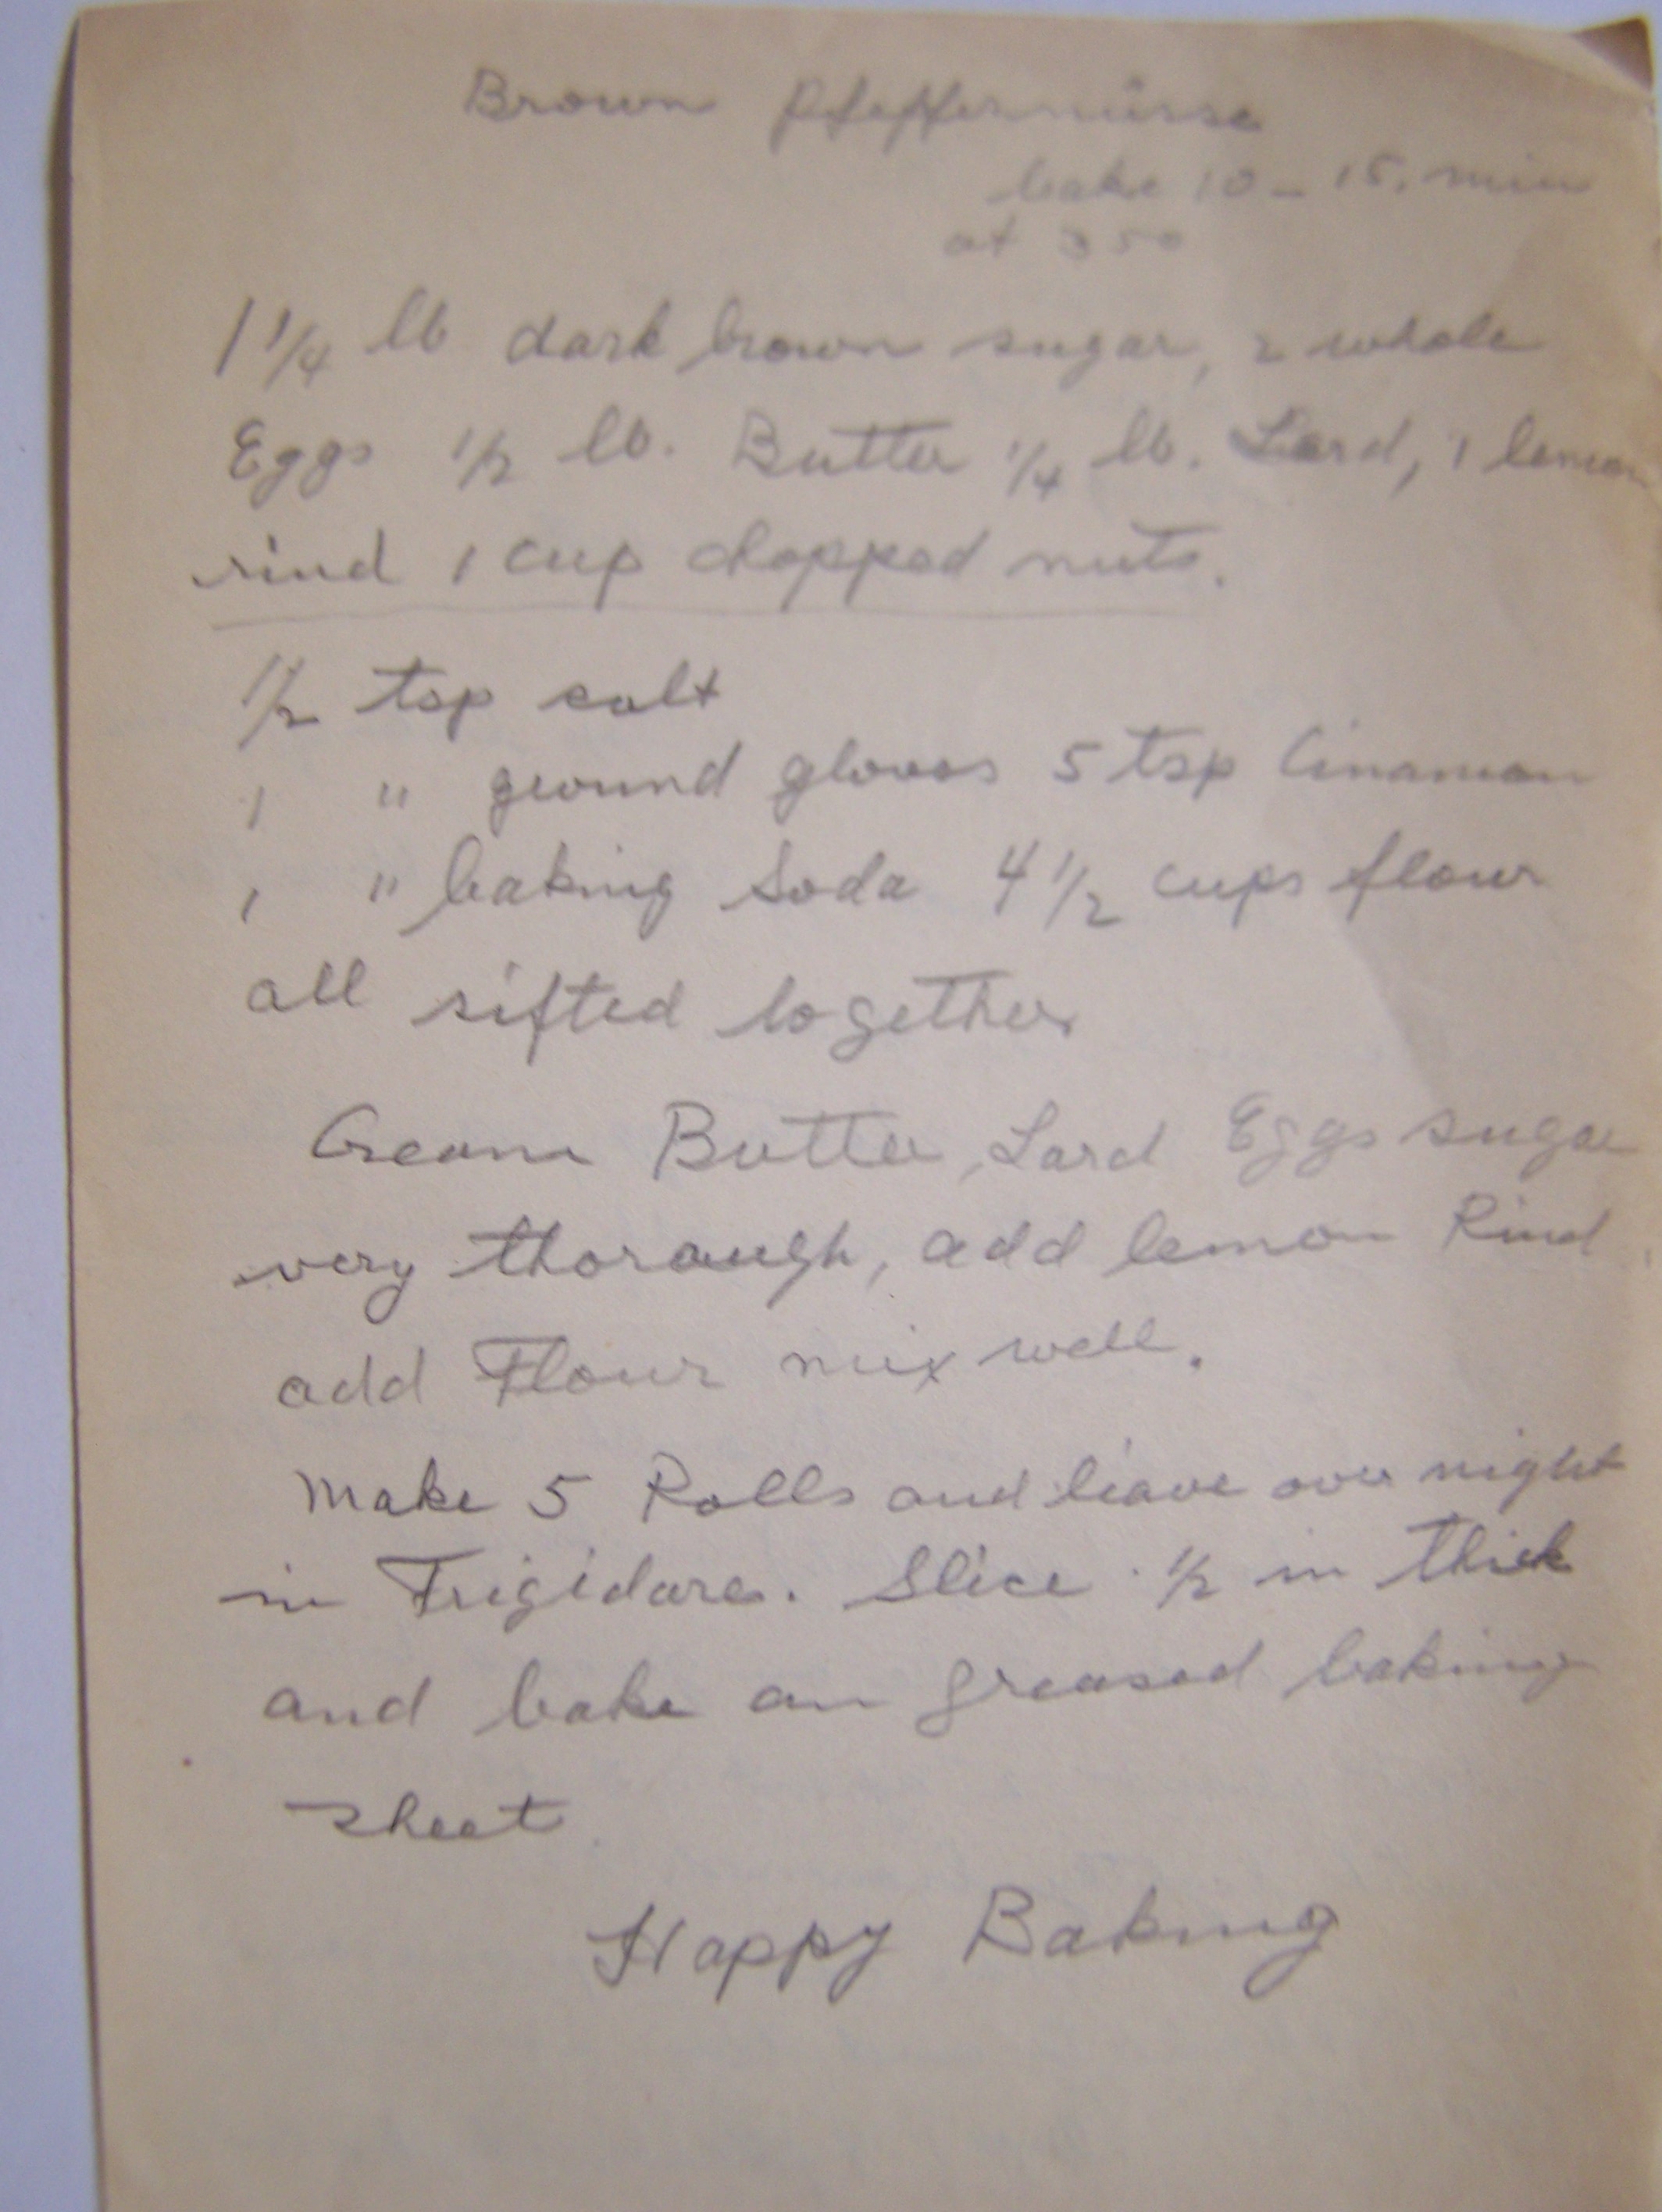 Brown Pfeffernüsse
bake 10 - 15. min
at 350
1 1/4 lb dark brown sugar, 2 whole
Eggs 1/2 lb. Butter 1/4 lb. Lard, 1 lemon
rind 1 cup chopped nuts.
1/2 tsp salt
1 " ground gloves 5 tsp Cinamon
1 " baking Soda 4 1/2 cups flour
all sifted together
Cream Butter, Lard Eggs sugar
very thorough, add lemon Rind
add Flour mix well.
Make 5 Rolls and leave over night
in Frigidare. Slice 1/2 in thick
and bake on greased baking
sheet
Happy Baking